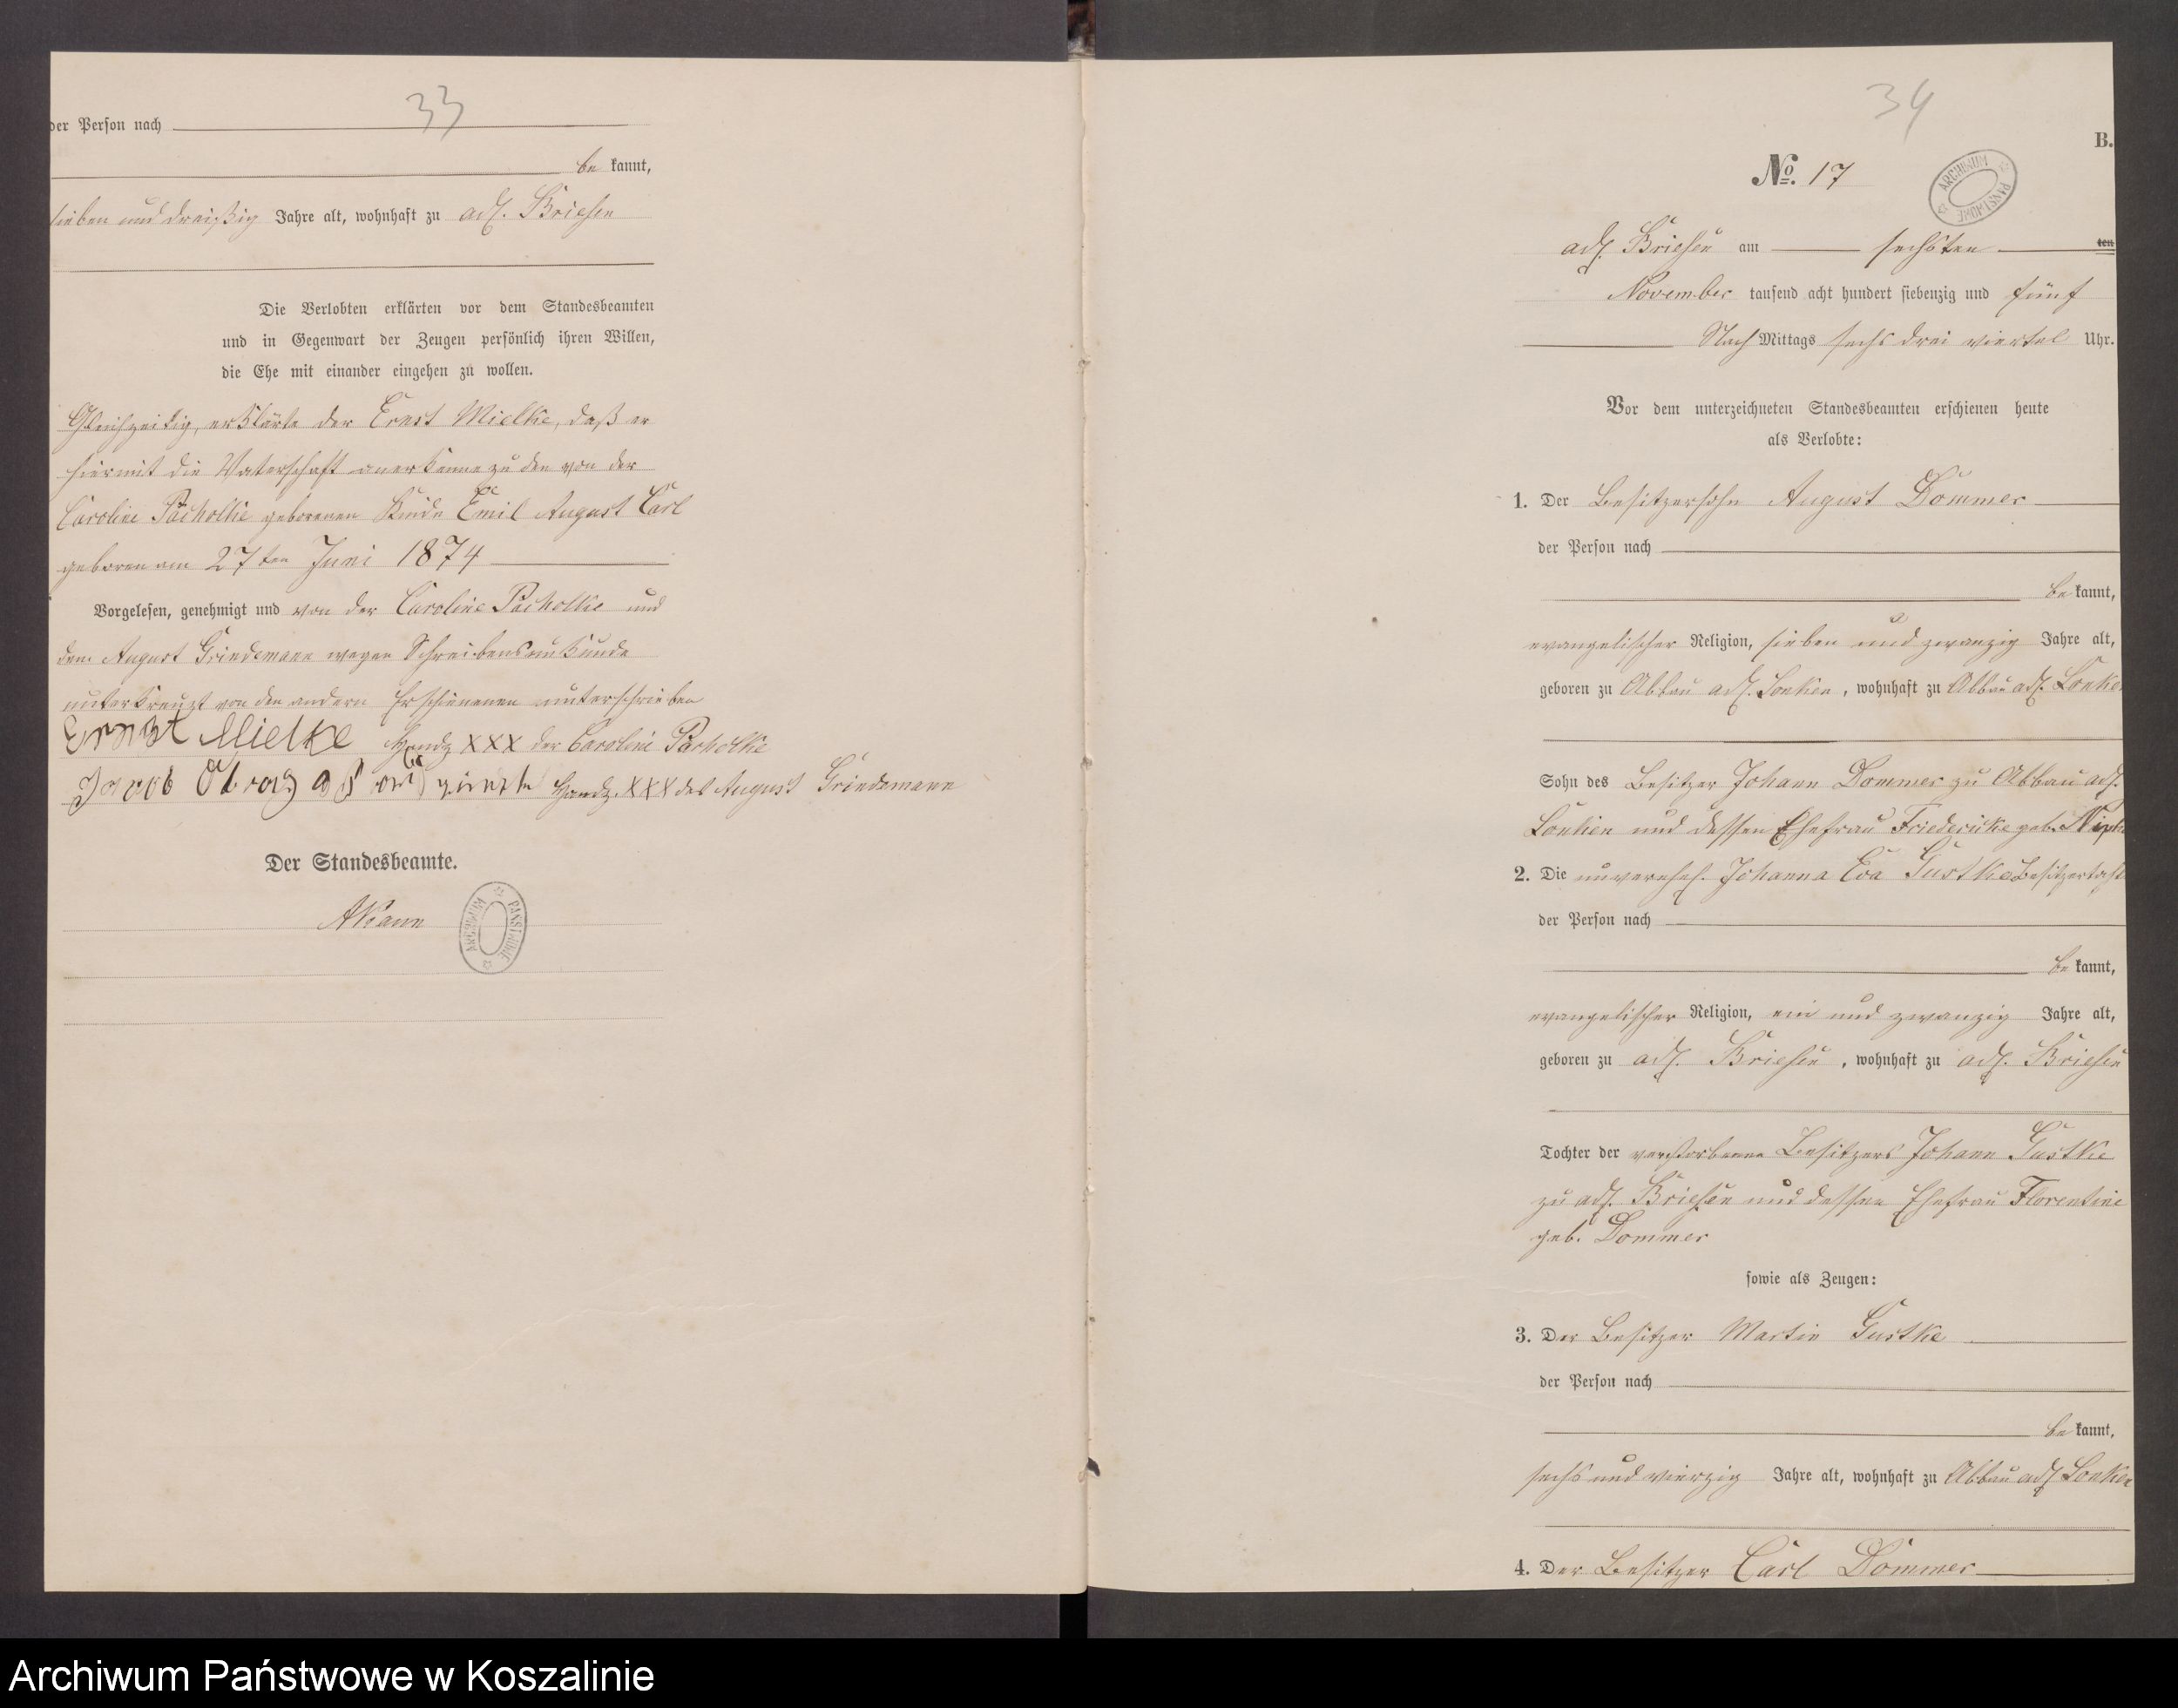 33
der Person nach
be kannt,
sieben und dreißig Jahre alt, wohnhaft zu adl. Briesen
Die Verlobten erklärten vor dem Standesbeamten
und in Gegenwart der Zeugen persönlich ihren Willen,
die Ehe mit einander eingehen zu wollen.
Gleichzeitig, erklärte der Ernst Mielke, daß er
hiermit die Vaterschaft anerkenne zu den von der
Caroline Pacholke geborenen Kinde Emil August Carl
geboren am 27ten Juni 1874
Vorgelesen, genehmigt und von der Caroline Pacholke und
dem August Griedemann wegen Schreibensunkunde
unterkreuzt von den andern Erschienenen unterschrieben
Ernst Mielke Handz XXX der Caroline Pacholke
Jacob Handz. XXX des August Griedemann
Der Standesbeamte.
ARCHIWUM PAŃSTWOWE
34
B.
No. 17
ARCHIWUM PAŃSTWOWE
adl. Briesen am sechsten ten
November tausend acht hundert siebenzig und fünf
Nach Mittags sechs drei viertel Uhr.
Vor dem unterzeichneten Standesbeamten erschienen heute
als Verlobte:
1. Der Besitzersohn August Dommer
der Person nach
be kannt,
evangelischer Religion, sieben und zwanzig Jahre alt,
geboren zu Abbau adl. Lonken, wohnhaft zu Abbau adl. Lonken
Sohn des Besitzer Johann Dommer zu Abbau adl.
Lonken und dessen Ehefrau Friedericke geb.
2. Die unverehel. Johanna Eva Gustke Besitzertocht
der Person nach
be kannt,
evangelischer Religion, ein und zwanzig Jahre alt,
geboren zu adl. Briesen, wohnhaft zu adl. Briesen
Tochter der verstorbenen Besitzers Johann Gustke
zu adl. Briesen und dessen Ehefrau Florentine
geb. Dommer
sowie als Zeugen:
3. Der Besitzer Martin Gustke
der Person nach
be kannt,
sechs und vierzig Jahre alt, wohnhaft zu Abbau adl Lonken
4. Der Besitzer Carl Dommer
Archiwum Państwowe w Koszalinie